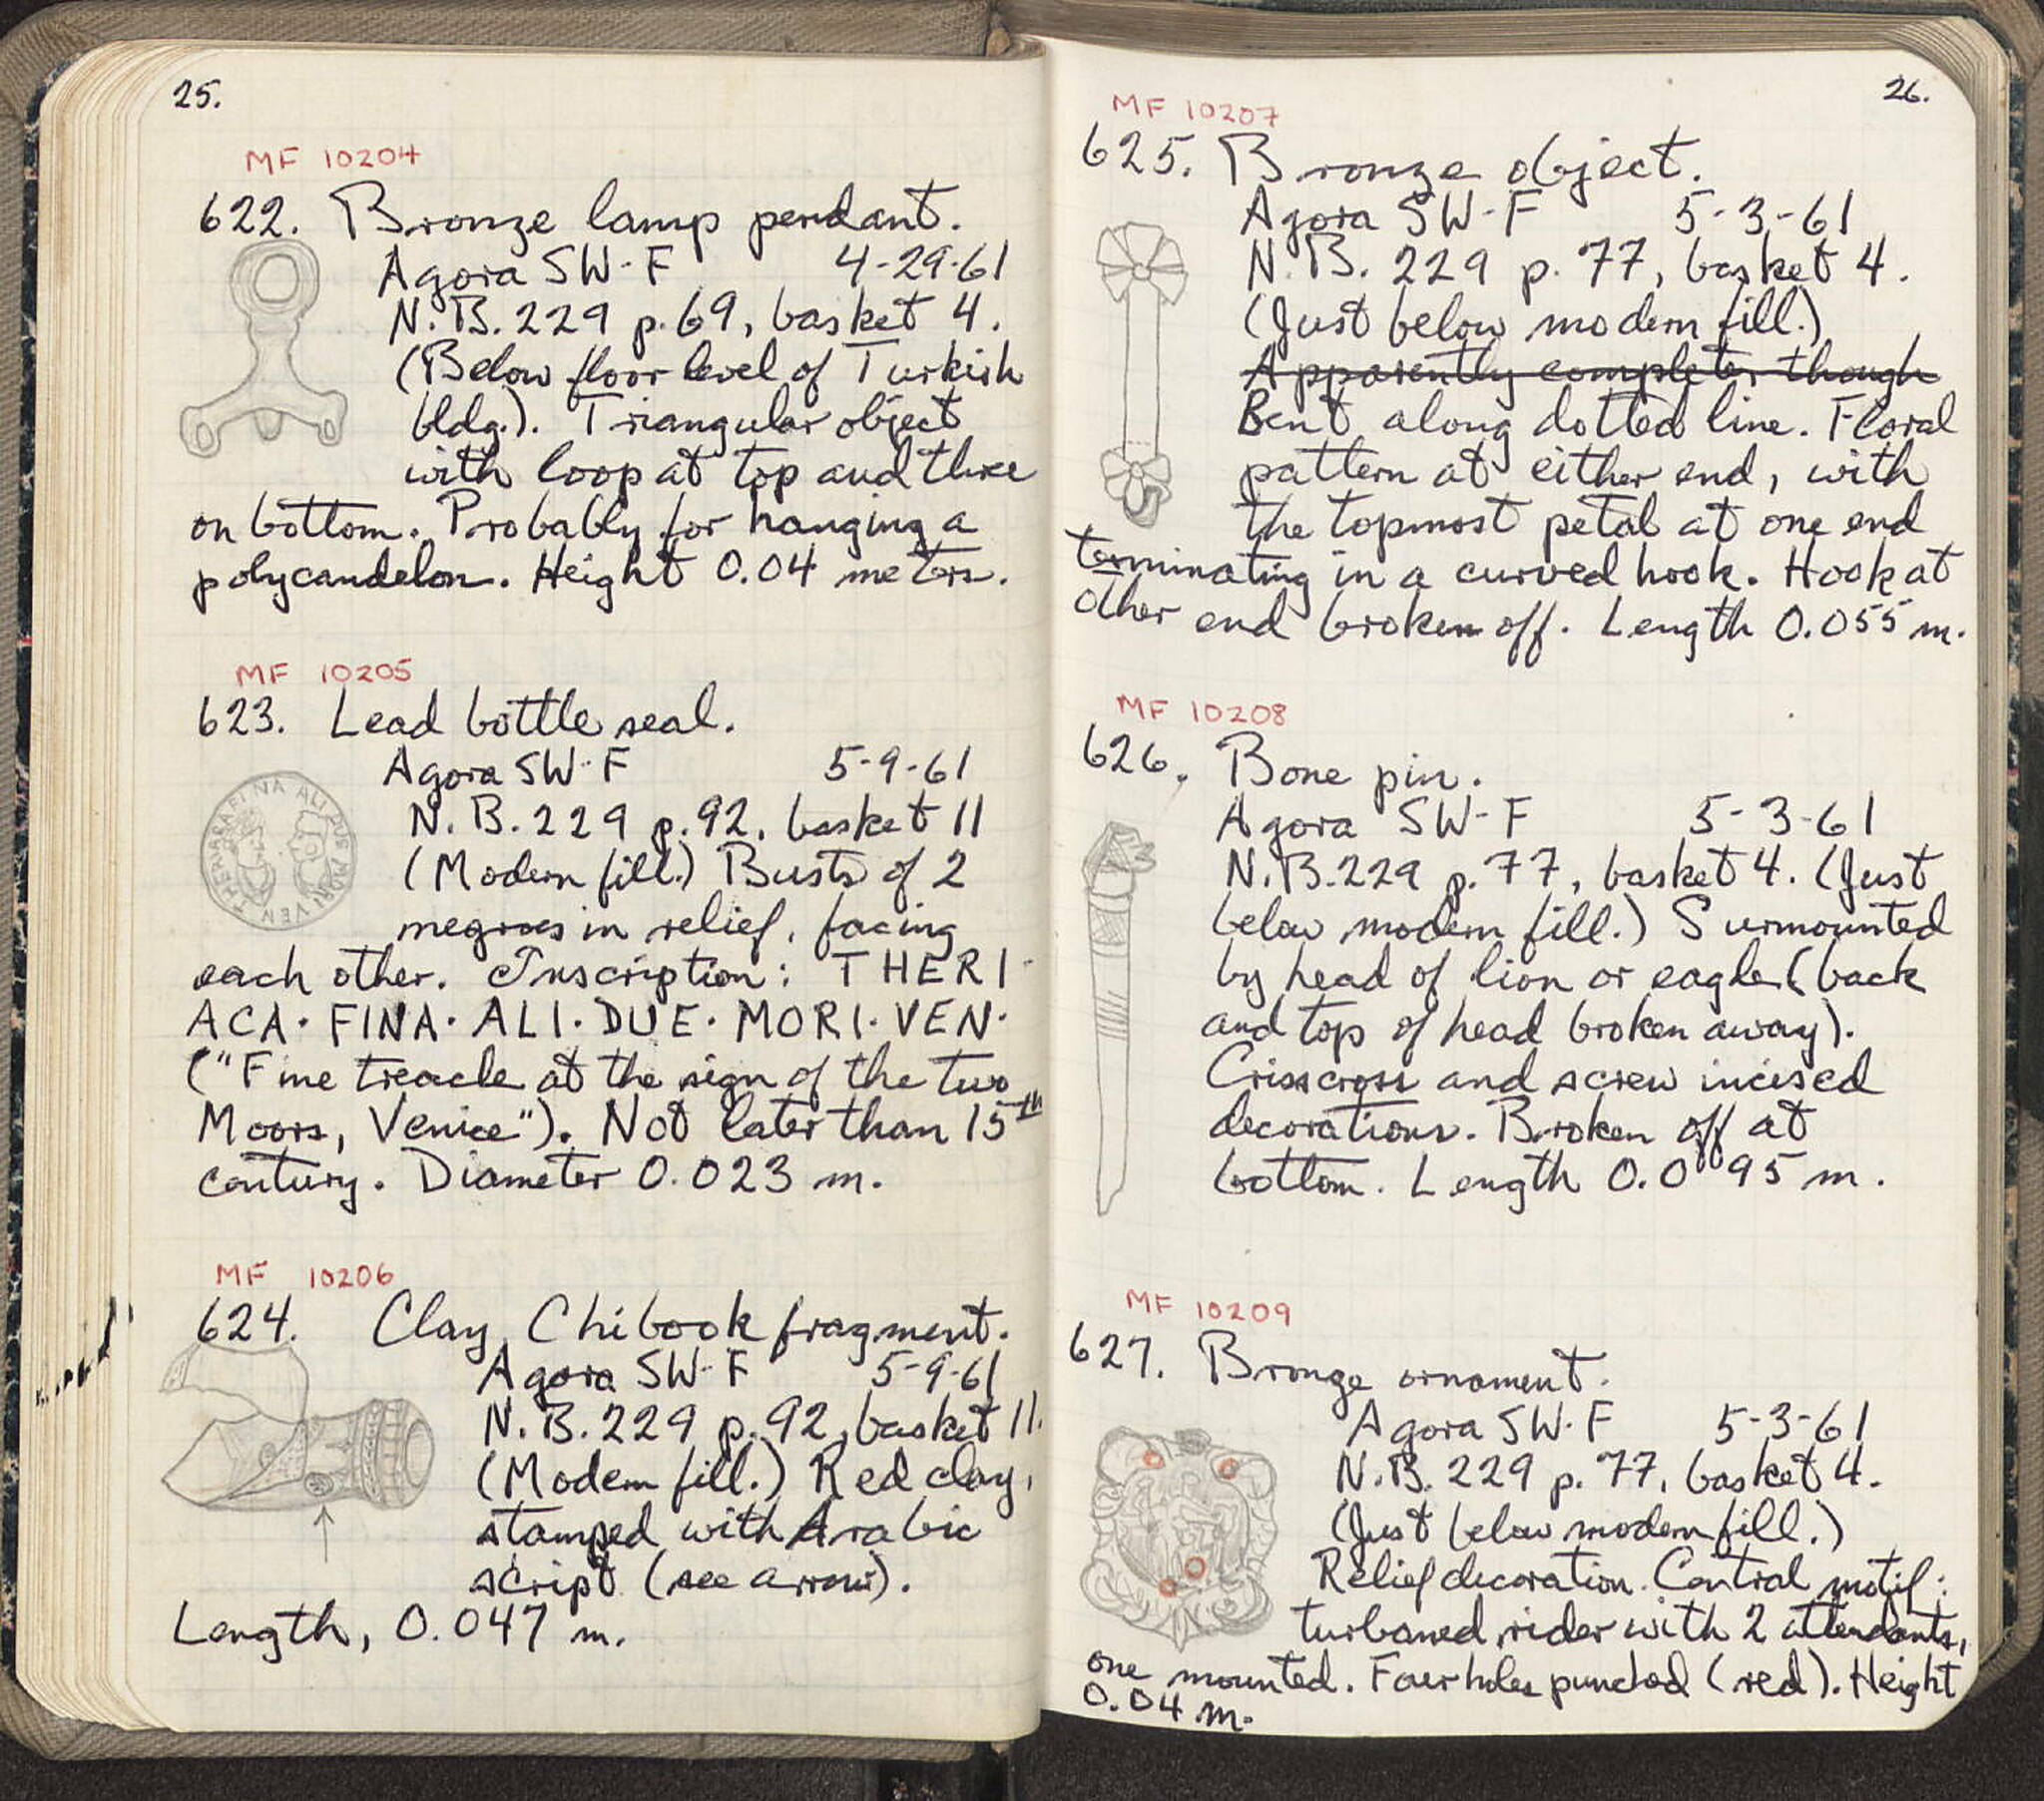 25.
MF 10204
622. Bronze lamp pendant.
Agora SW-F 4-29-61
N.B. 229 p. 69, basket 4.
(Below floor level of Turkish
bldg.). Triangular object
with loop at top and three
on bottom. Probably for hanging a
polycandelon. Height 0.04 meters.
MF 10205
623. Lead bottle seal.
Agora SW-F 5-9-61
N.B. 229 p. 92, basket 11
(Modern fill.) Busts of 2
negroes in relief, facing
each other. Inscription: THERI
ACA· FINA· ALI· DUE· MORI· VEN·
("Fine treacle at the sign of the two
Moors, Venice"). Not later than 15th
century. Diameter 0.023 m.
MF 10206
624. Clay Chibook fragment.
Agora SW-F 5-9-61
N.B. 229 p. 92, basket 11.
(Modern fill.) Red clay,
stamped with Arabic
script (see arrow).
Length, 0.047 m.
26.
MF 10207
625. Bronze object.
Agora SW-F 5-3-61
N.B. 229 p. 77, basket 4.
(Just below modern fill.)
Apparently complete, though
Bent along dotted line. Floral
pattern at either end, with
the topmost petal at one end
terminating in a curved hook. Hook at
other end broken off. Length 0.055 m.
MF 10208
626. Bone pin.
Agora SW-F 5-3-61
N.B. 229 p. 77, basket 4. (Just
below modern fill.) Surmounted
by head of lion or eagle (back
and top of head broken away).
Crisscross and screw incised
decorations. Broken off at
bottom. Length 0.095 m.
MF 10209
627. Bronze ornament.
Agora SW-F 5-3-61
N.B. 229 p. 77, basket 4.
(Just below modern fill.)
Relief decoration. Central motif:
turbaned rider with 2 attendants,
one mounted. Four holes punched (red). Height
0.04 m.